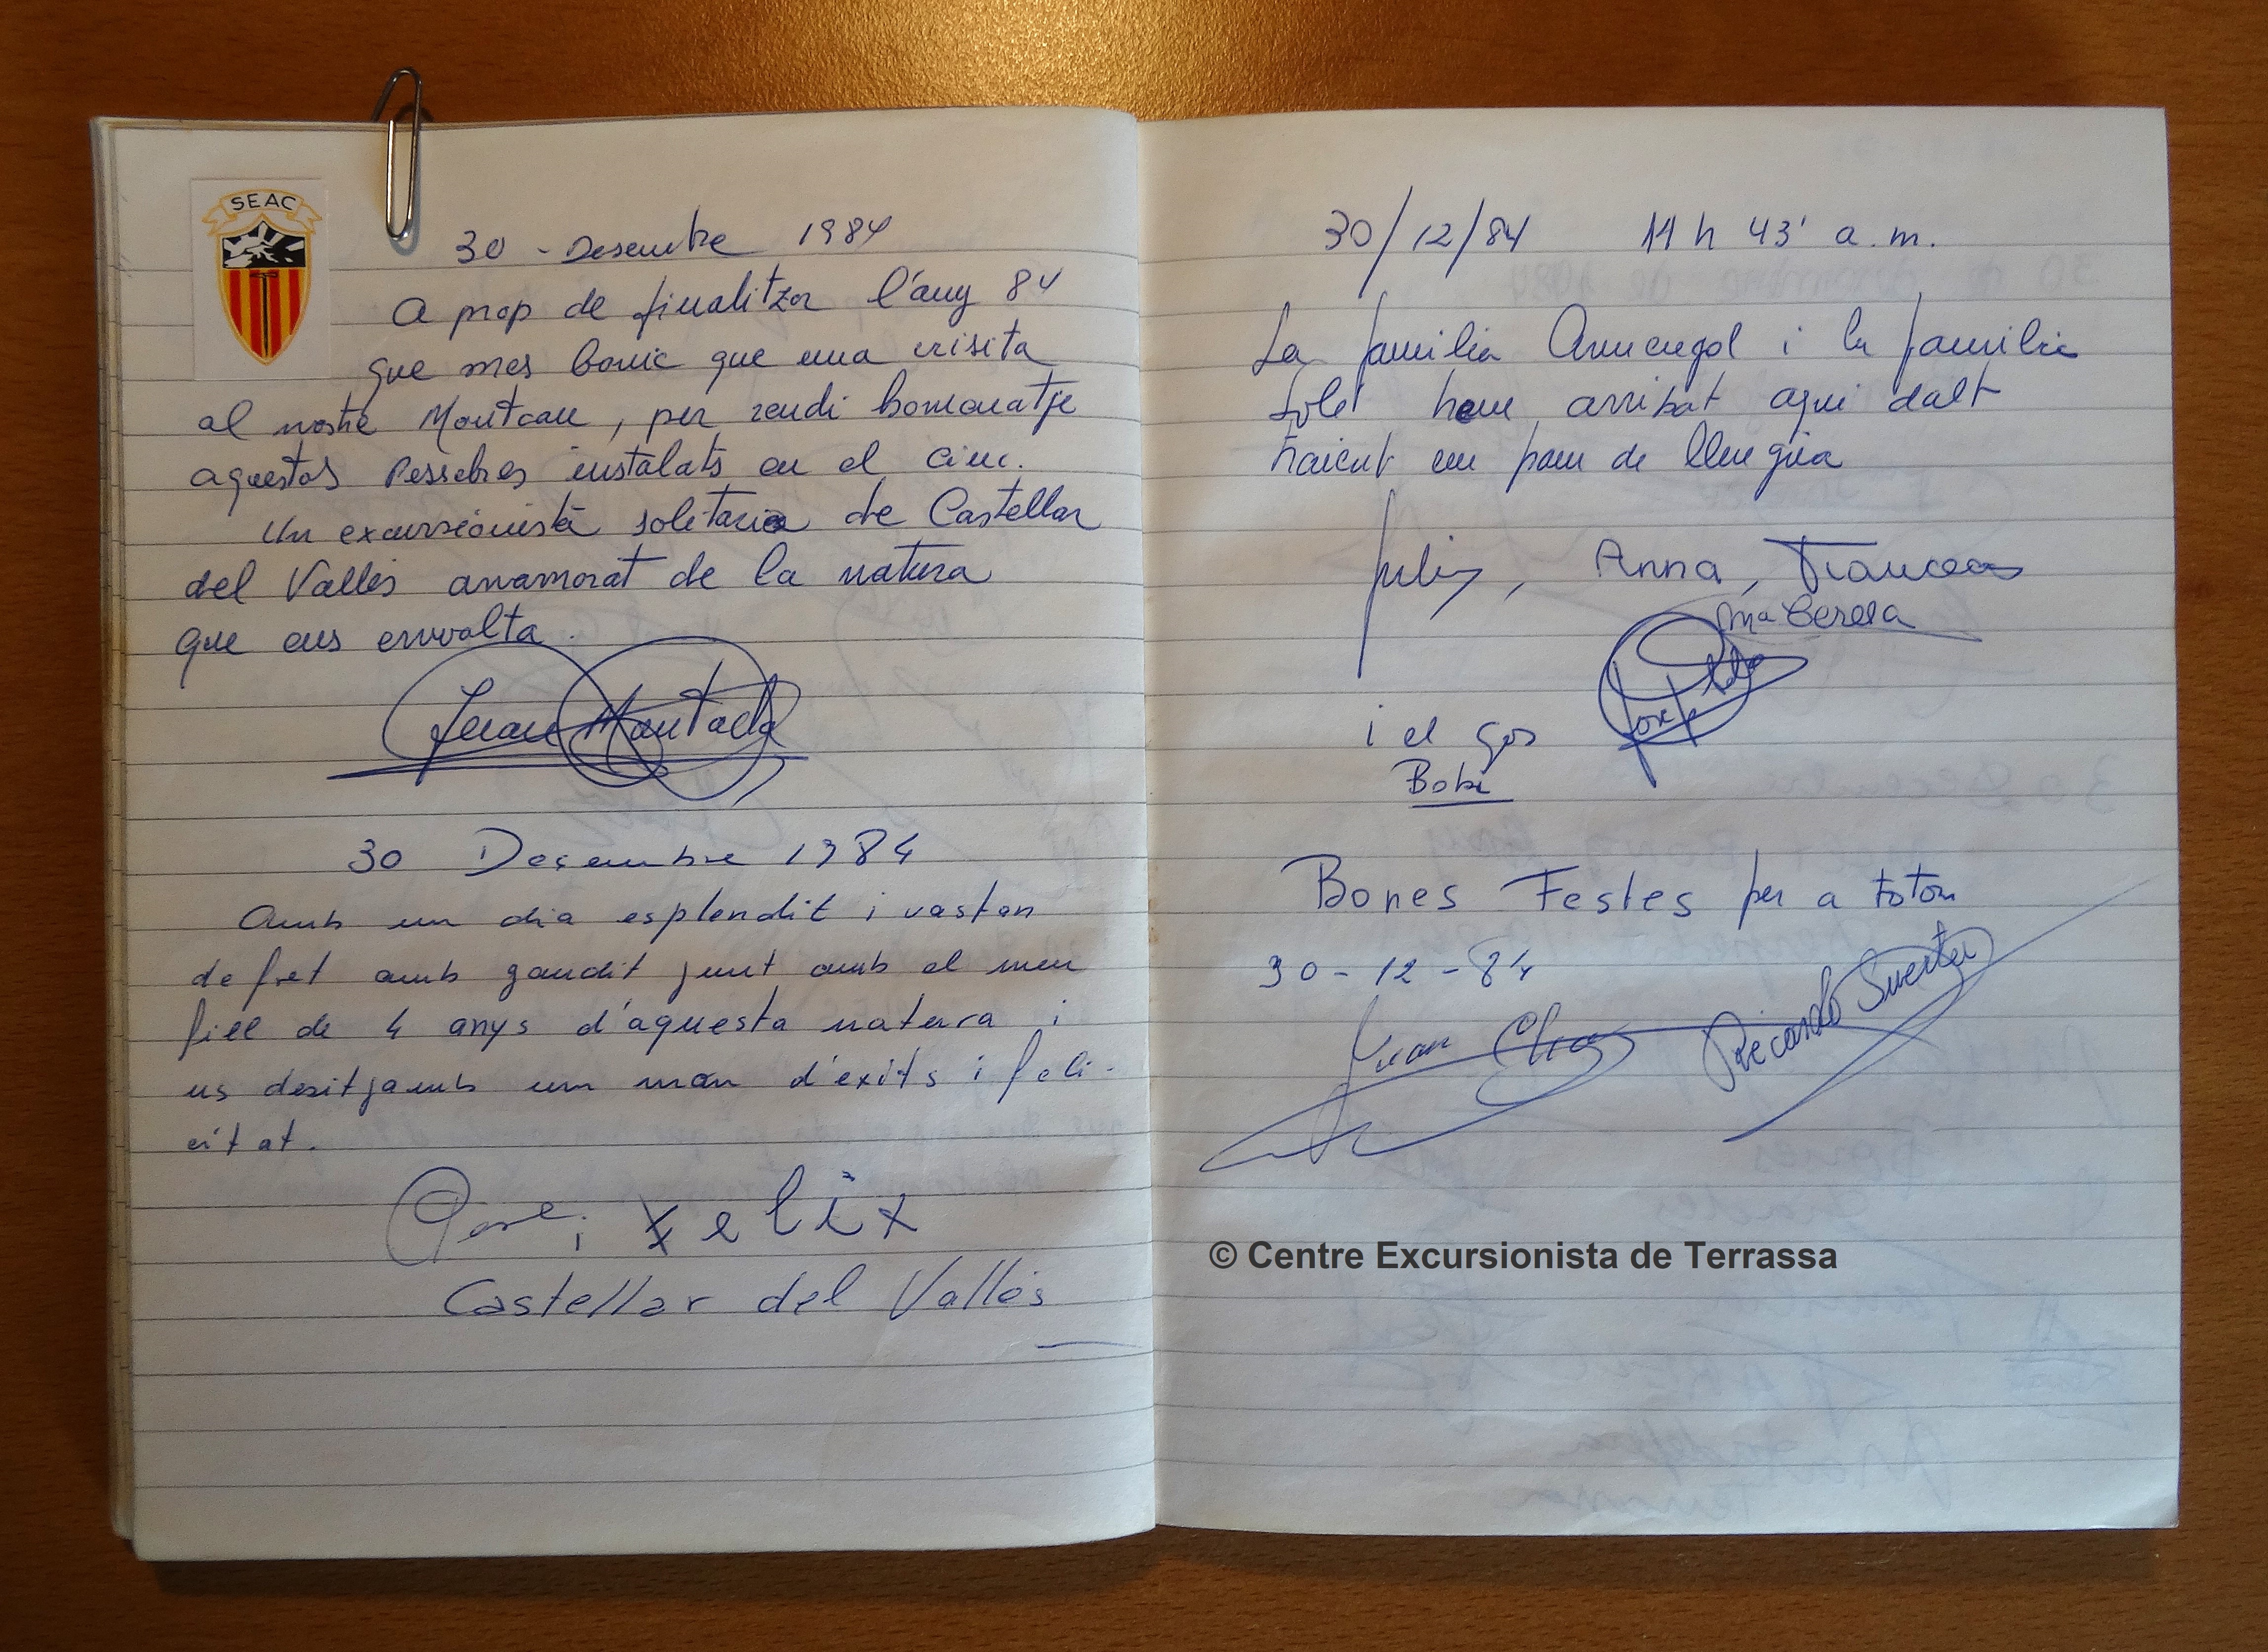 SEAC
30 - Desembre 1984
A prop de finalitzar l'any 84
que mes bonic que una visita
al nostre Montcau, per rendi homenatje
aquestas Pessebres instalats en el cim.
Un excursionista solitario de Castellar
del Valles anamorat de la natura
que ens envolta.
Juan Muntada
30 Desembre 1984
Amb un dia esplendit i vastan
de fret amb gaudit junt amb el meu
fill de 4 anys d'aquesta natura i
us desitjamb un mon d'exits i feli-
citat.
i Felix
Castellar del Vallès
30/12/84 11 h 43' a.m.
La familia Armengol i la familia
Solé hem arribat aqui dalt
traient un pam de llengua
Julia, Anna, Francesc
Mª Teresa
Josep
i el gos
Bobi
Bones Festes per a totom
30-12-84
Juan Ricardo
© Centre Excursionista de Terrassa